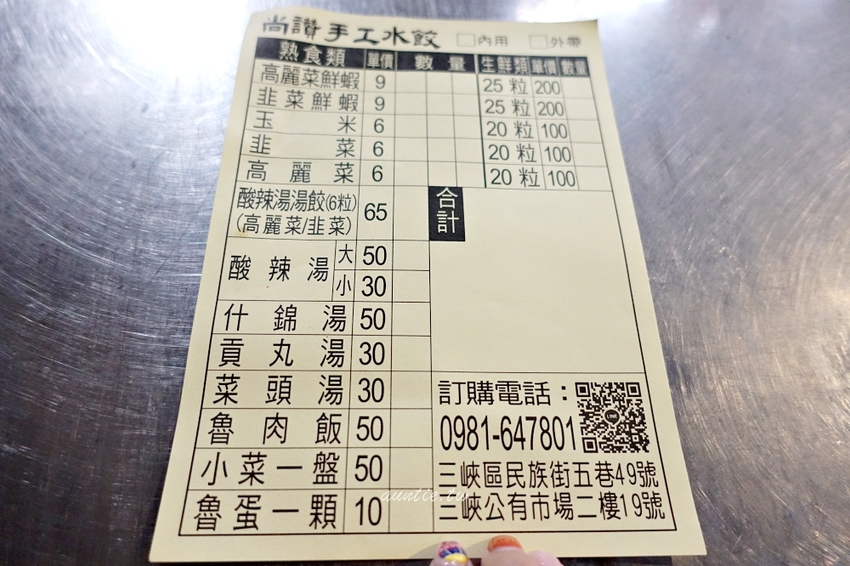 尚讚手工水餃 □內用 □外帶
熟食類 單價 數量 生鮮類 單價 數量
高麗菜鮮蝦 9 25粒 200
韭菜鮮蝦 9 25粒 200
玉米 6 20粒 100
韭菜 6 20粒 100
高麗菜 6 20粒 100
酸辣湯湯餃(6粒) 65
(高麗菜/韭菜)
合計
酸辣湯 大 50
小 30
什錦湯 50
貢丸湯 30
菜頭湯 30
魯肉飯 50
小菜一盤 50
魯蛋一顆 10
訂購電話：
0981-647801
三峽區民族街五巷49號
三峽公有市場二樓19號
auntie.tw